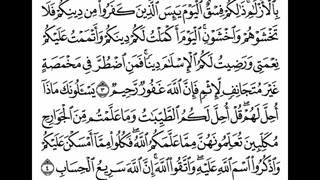 بِٱلْأَزْلَٰمِ ذَٰلِكُمْ فِسْقٌ ٱلْيَوْمَ يَئِسَ ٱلَّذِينَ كَفَرُوا۟ مِن دِينِكُمْ فَلَا
تَخْشَوْهُمْ وَٱخْشَوْنِ ٱلْيَوْمَ أَكْمَلْتُ لَكُمْ دِينَكُمْ وَأَتْمَمْتُ عَلَيْكُمْ
نِعْمَتِى وَرَضِيتُ لَكُمُ ٱلْإِسْلَٰمَ دِينًا فَمَنِ ٱضْطُرَّ فِى مَخْمَصَةٍ
غَيْرَ مُتَجَانِفٍ لِّإِثْمٍ فَإِنَّ ٱللَّهَ غَفُورٌ رَّحِيمٌ ٣ يَسْـَٔلُونَكَ مَاذَآ
أُحِلَّ لَهُمْ قُلْ أُحِلَّ لَكُمُ ٱلطَّيِّبَٰتُ وَمَا عَلَّمْتُم مِّنَ ٱلْجَوَارِحِ
مُكَلِّبِينَ تُعَلِّمُونَهُنَّ مِمَّا عَلَّمَكُمُ ٱللَّهُ فَكُلُوا۟ مِمَّآ أَمْسَكْنَ عَلَيْكُمْ
وَٱذْكُرُوا۟ ٱسْمَ ٱللَّهِ عَلَيْهِ وَٱتَّقُوا۟ ٱللَّهَ إِنَّ ٱللَّهَ سَرِيعُ ٱلْحِسَابِ ٤